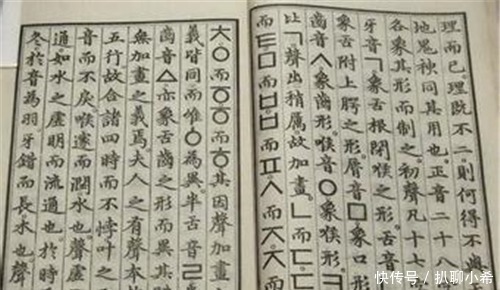 理而已。理既不二。則何得不與
地鬼神同其用也。正音二十八
各象其形而制之。初聲凡十七
牙音ㄱ象舌根閉喉之形。舌音
象舌附上腭之形。脣音ㅁ象口形
齒音ㅅ象齒形。喉音ㅇ象喉形
比ㄱ聲出稍厲故加畫。ㄴ而ㄷ
而ㅌㅁ而ㅂㅂ而ㅍㅅ而ㅈㅈ而
ㅊㅇ而ㆆㆆ而ㅎ其因聲加畫
義皆同而唯ㆁ為異。半舌音ㄹ
齒音ㅿ亦象舌齒之形而異其
無加畫之義焉。夫人之有聲本
五行故合諸四時而不悖叶之
音而不戾。喉邃而潤。水也。聲
通。如水之虛明而流通也。於時
冬於音為羽。牙錯而長。木也。聲
快传号／扒聊小希